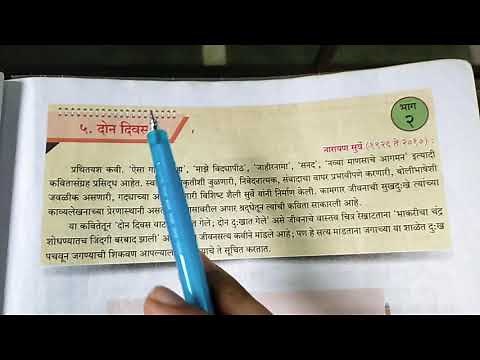 भाग
२
५. दोन दिवस
नारायण सुर्वे (१९२६ ते २०१०) :
प्रथितयश कवी. 'ऐसा गा', 'माझे विद्यापीठ', 'जाहीरनामा', 'सनद', 'नव्या माणसाचे आगमन' इत्यादी
कवितासंग्रह प्रसिद्ध आहेत. जुळणारी, निवेदनात्मक, संवादाचा वापर प्रभावीपणे करणारी, बोलीभाषेशी
जवळीक असणारी, गद्याच्या विशिष्ट शैली सुर्वे यांनी निर्माण केली. कामगार जीवनाची सुखदुःखे त्यांच्या
काव्यलेखनाच्या प्रेरणास्थानी असत अपार श्रद्धेतून त्यांची कविता साकारली आहे.
या कवितेतून 'दोन दिवस वाट गेले; दोन दुःखात गेले' असे जीवनाचे वास्तव चित्र रेखाटताना 'भाकरीचा चंद्र
शोधण्यातच जिंदगी बरबाद झाली' जीवनसत्य कवीने मांडले आहे; पण हे सत्य मांडताना जगाच्या या शाळेत दुःख
पचवून जगण्याची शिकवण आपल्याला चे ते सूचित करतात.